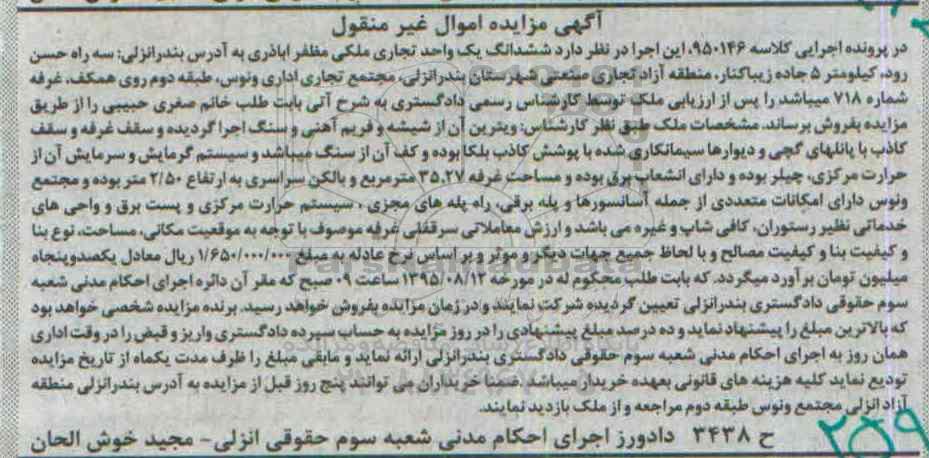 آگهی مزایده اموال غیر منقول
در پرونده اجرایی کلاسه ۹۵۰۱۴۶، این اجرا در نظر دارد ششدانگ یک واحد تجاری ملکی مظفر اباذری به آدرس بندرانزلی: سه راه حسن
رود، کیلومتر ۵ جاده زیباکنار، منطقه آزاد تجاری صنعتی شهرستان بندرانزلی، مجتمع تجاری اداری ونوس، طبقه دوم روی همکف، غرفه
شماره ۷۱۸ میباشد را پس از ارزیابی ملک توسط کارشناس رسمی دادگستری به شرح آتی بابت طلب خانم صغری حبیبی را از طریق
مزایده بفروش برساند. مشخصات ملک طبق نظر کارشناس: ویترین آن از شیشه و فریم آهنی و سنگ اجرا گردیده و سقف غرفه و سقف
کاذب با پانلهای گچی و دیوارها سیمانکاری شده با پوشش کاذب بلکا بوده و کف آن از سنگ میباشد و سیستم گرمایش و سرمایش آن از
حرارت مرکزی، چیلر بوده و دارای انشعاب برق بوده و مساحت غرفه ۳۵،۲۷ مترمربع و بالکن سراسری به ارتفاع ۲/۵۰ متر بوده و مجتمع
ونوس دارای امکانات متعددی از جمله آسانسورها و پله برقی، راه پله های مجزی، سیستم حرارت مرکزی و پست برق و واحی های
خدماتی نظیر رستوران، کافی شاپ و غیره می باشد و ارزش معاملاتی سرقفلی غرفه موصوف با توجه به موقعیت مکانی، مساحت، نوع بنا
و کیفیت بنا و کیفیت مصالح و با لحاظ جمیع جهات دیگر و موثر و بر اساس نرخ عادله به مبلغ ۱/۶۵۰/۰۰۰/۰۰۰ ریال معادل یکصدوپنجاه
میلیون تومان برآورد میگردد. که بابت طلب محکوم له در مورخه ۱۳۹۵/۰۸/۱۲ ساعت ۰۹ صبح که مقر آن دائره اجرای احکام مدنی شعبه
سوم حقوقی دادگستری بندرانزلی تعیین گردیده شرکت نمایند و در زمان مزایده بفروش خواهد رسید. برنده مزایده شخصی خواهد بود
که بالاترین مبلغ را پیشنهاد نماید و ده درصد مبلغ پیشنهادی را در روز مزایده به حساب سپرده دادگستری واریز و قبض را در وقت اداری
همان روز به اجرای احکام مدنی شعبه سوم حقوقی دادگستری بندرانزلی ارائه نماید و مابقی مبلغ را ظرف مدت یکماه از تاریخ مزایده
تودیع نماید کلیه هزینه های قانونی بعهده خریدار میباشد. ضمنا خریداران می توانند پنج روز قبل از مزایده به آدرس بندرانزلی منطقه
آزاد انزلی مجتمع ونوس طبقه دوم مراجعه و از ملک بازدید نمایند.
ح ۳۴۳۸ دادورز اجرای احکام مدنی شعبه سوم حقوقی انزلی- مجید خوش الحان
۲۵۹